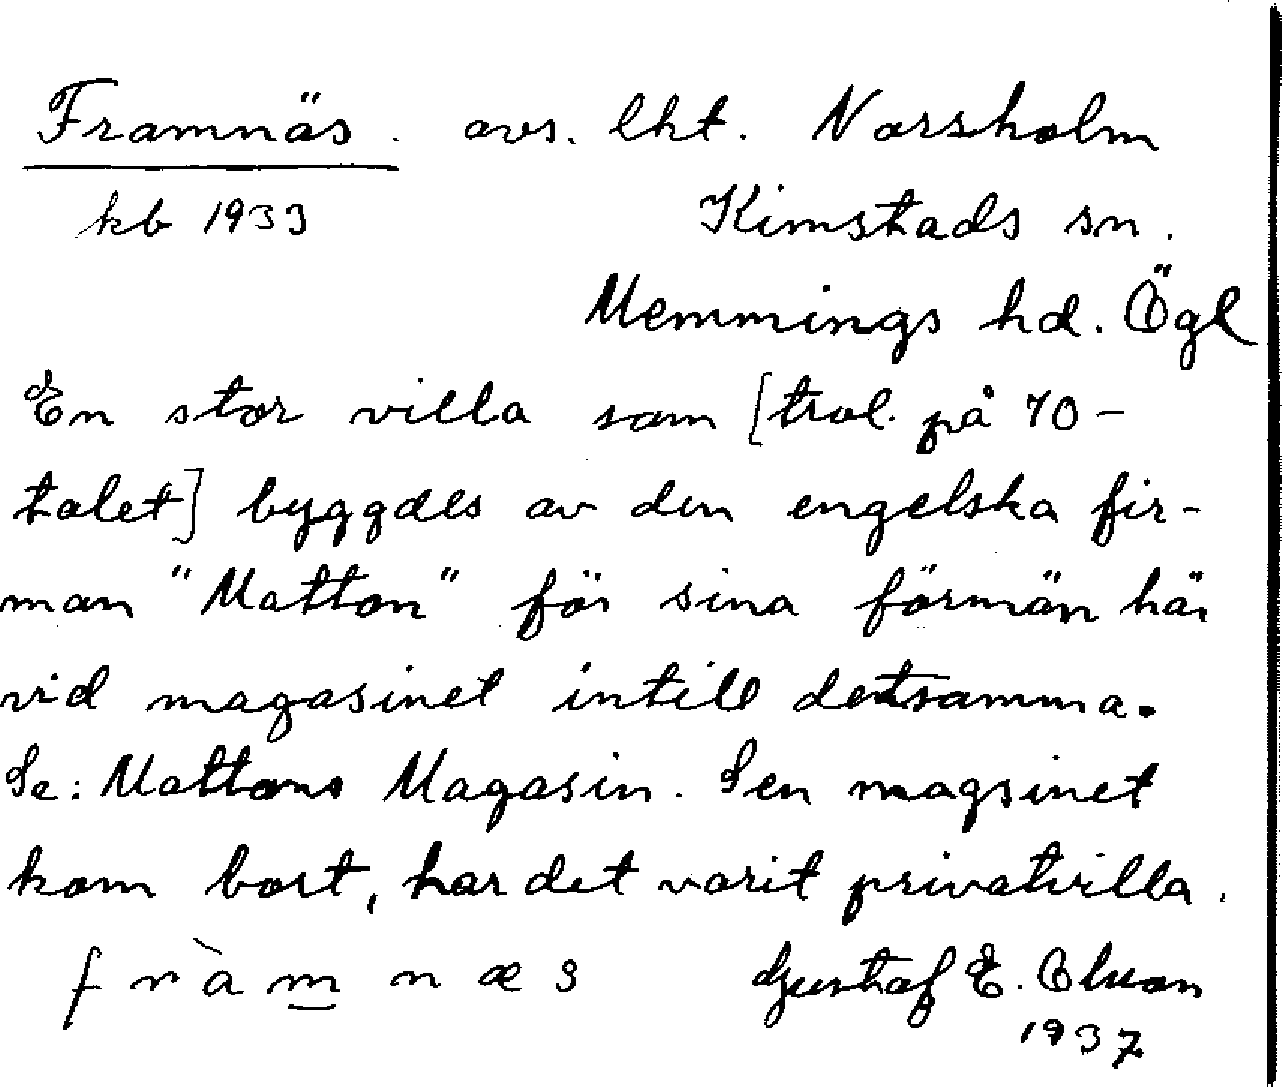 Framnäs. avs. lht. Norsholm
kb 1933 Kimstads sn.
Memmings hd. Ögl
En stor villa som [trol. på 70-
talet] byggdes av den engelska fir-
man "Matton" för sina förmän här
vid magasinet intill detsamma.
Se: Mattons Magasin. Sen magsinet
kom bort, har det varit privatvilla.
f r à m n æ s Gustaf E.
1937